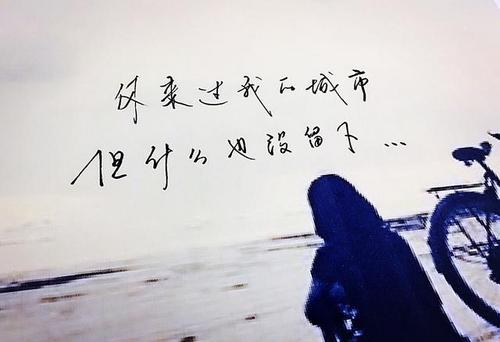 你来过我的城市
但什么也没留下...